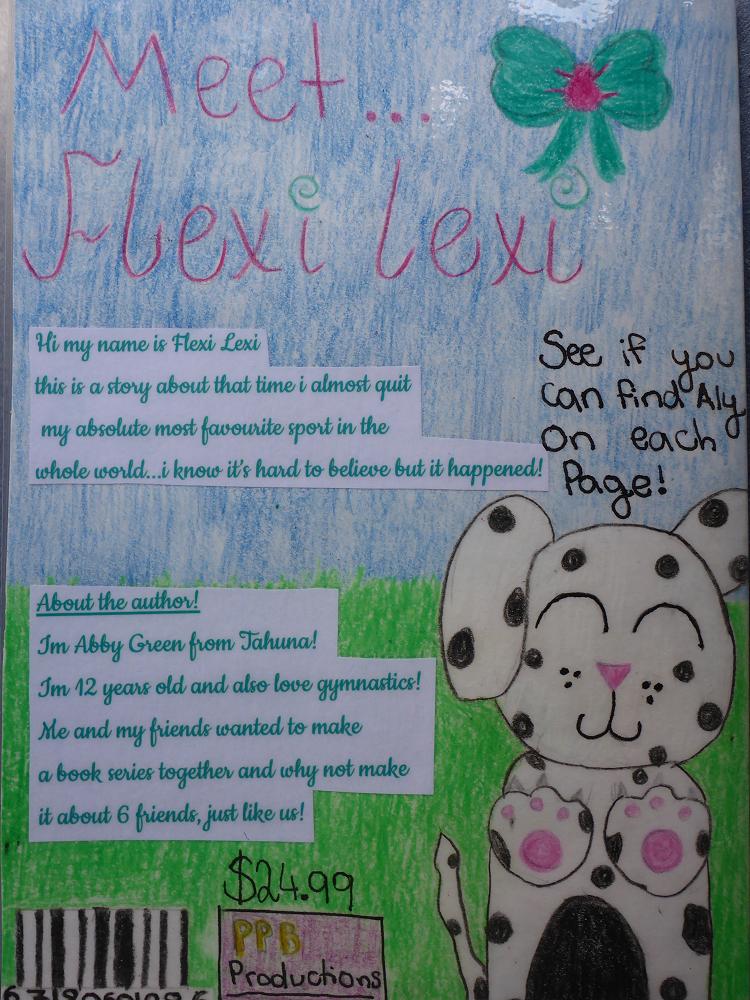 Meet...
Flexi Lexi
Hi my name is Flexi Lexi
this is a story about that time i almost quit
my absolute most favourite sport in the
whole world...i know it's hard to believe but it happened!
See if you
can find Aly
on each
Page!
About the author!
Im Abby Green from Tahuna!
Im 12 years old and also love gymnastics!
Me and my friends wanted to make
a book series together and why not make
it about 6 friends, just like us!
$24.99
PPB
Productions